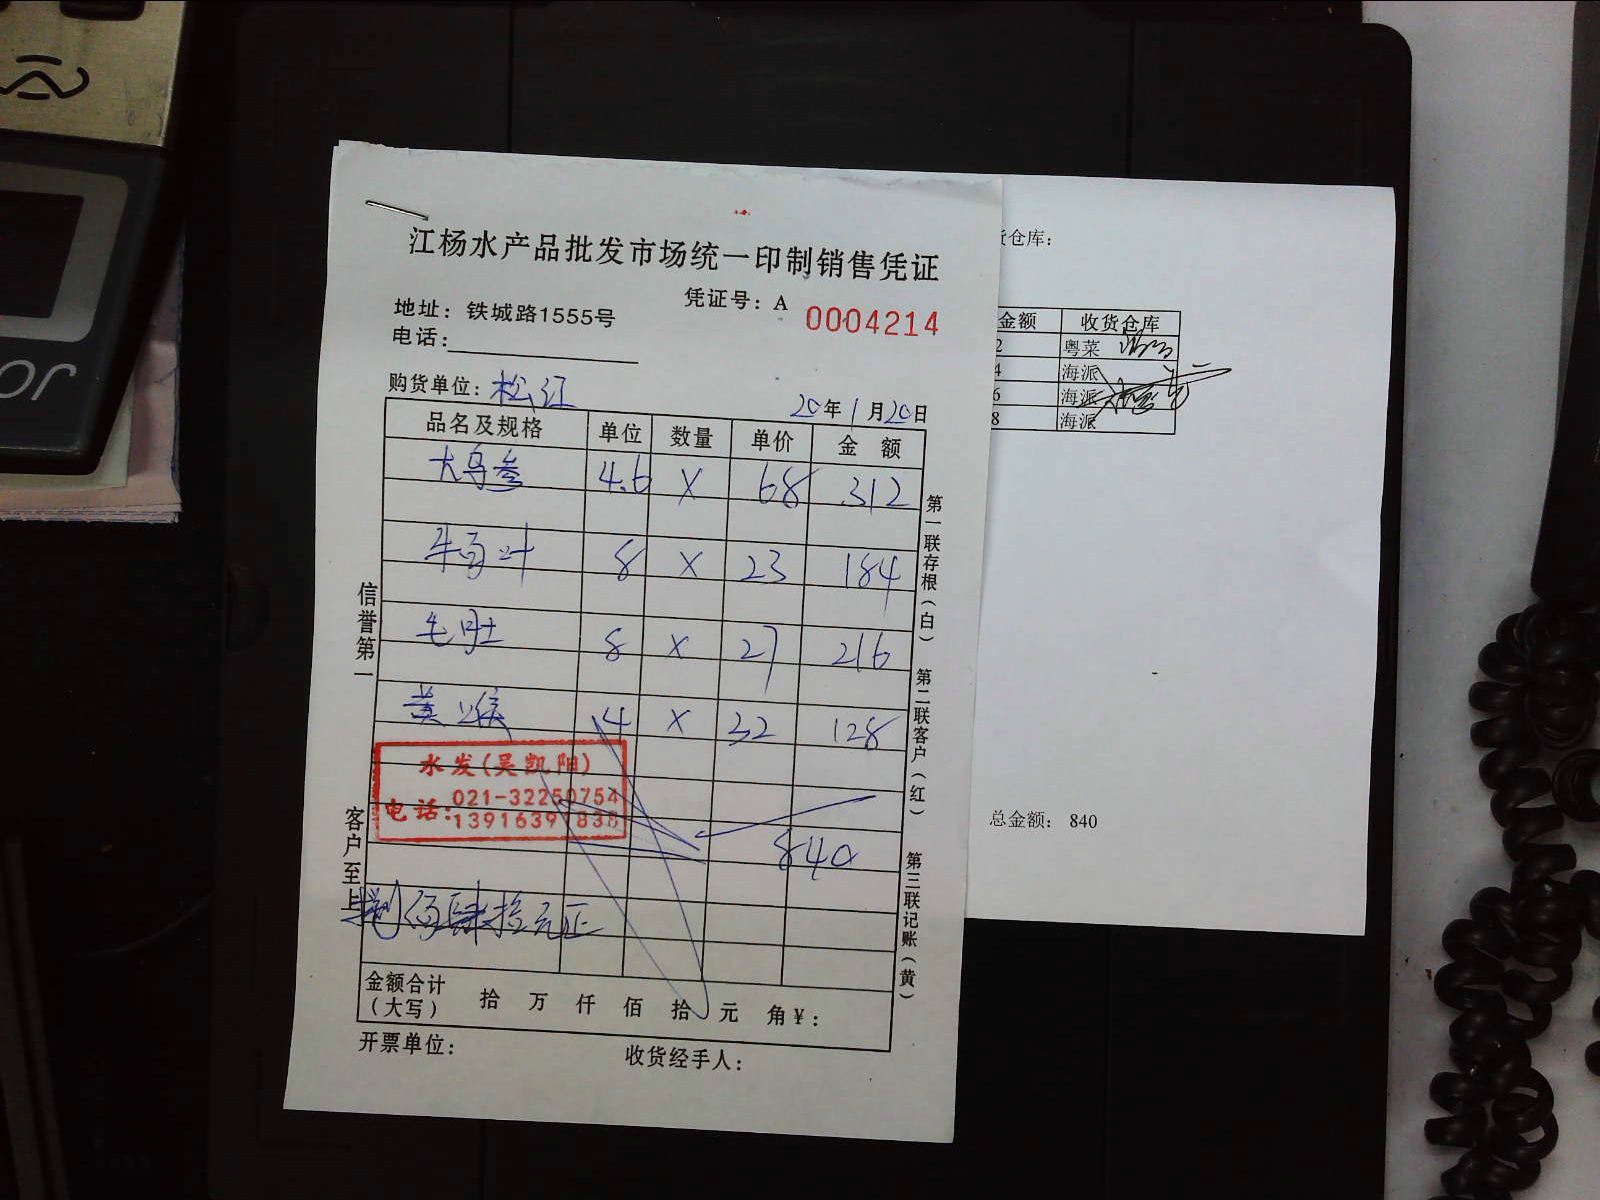 江杨水产品批发市场统一印制销售凭证
凭证号：A 0004214
地址：铁城路1555号
电话：
购货单位：松江
20年1月20日
品名及规格 单位 数量 单价 金 额
大乌参 4.6 X 68 312
牛百叶 8 X 23 184
毛肚 8 X 27 216
黄喉 4 X 32 128
水发(吴凯阳)
电话：021-32250754
13916391838
840
捌佰肆拾元正
金额合计
（大写） 拾 万 仟 佰 拾 元 角¥：
开票单位： 收货经手人：
信誉第一
客户至上
第一联存根（白）
第二联客户（红）
第三联记账（黄）
仓库：
金额 收货仓库
2 粤菜
4 海派
6 海派
8 海派
总金额： 840